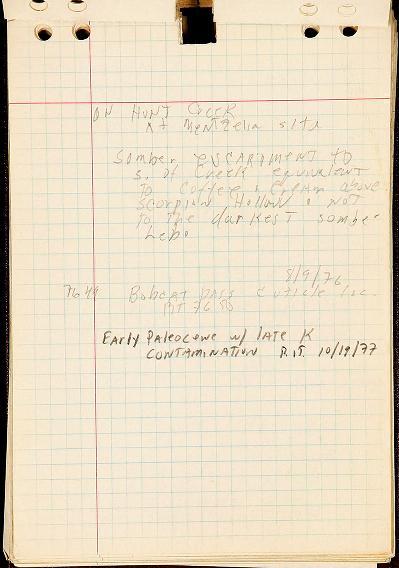 ON HUNT CREEK
AT MENTZELIA SITE
Somber ESCARPMENT TO
S. of Creek equivalent
To Coffee & Cream above
Scorpion Hollow & NOT
To The darkest somber
beds
8/9/76
7649 Bobcat pass Cuticle loc.
RT 76
Early Paleocene w/ late K
CONTAMINATION R.T. 10/19/77